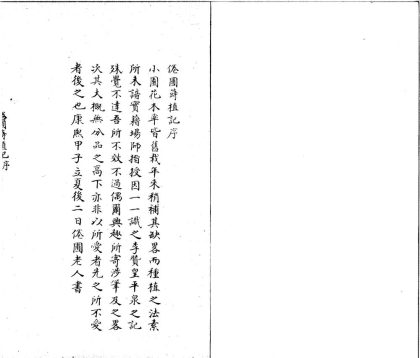 倦圃蒔植記序
小圃花木率皆舊栽年来稍補其缺畧而種植之法素
所未諳實籍塲師指授因一一識之李贊皇平泉之記
殊覺不達吾所不效不過偶爾興趣所寄涉筆及之畧
次其大概無分品之高下亦非以所愛者先之所不愛
者後之也康熙甲子立夏後二日倦圃老人書
倦圃蒔植記序